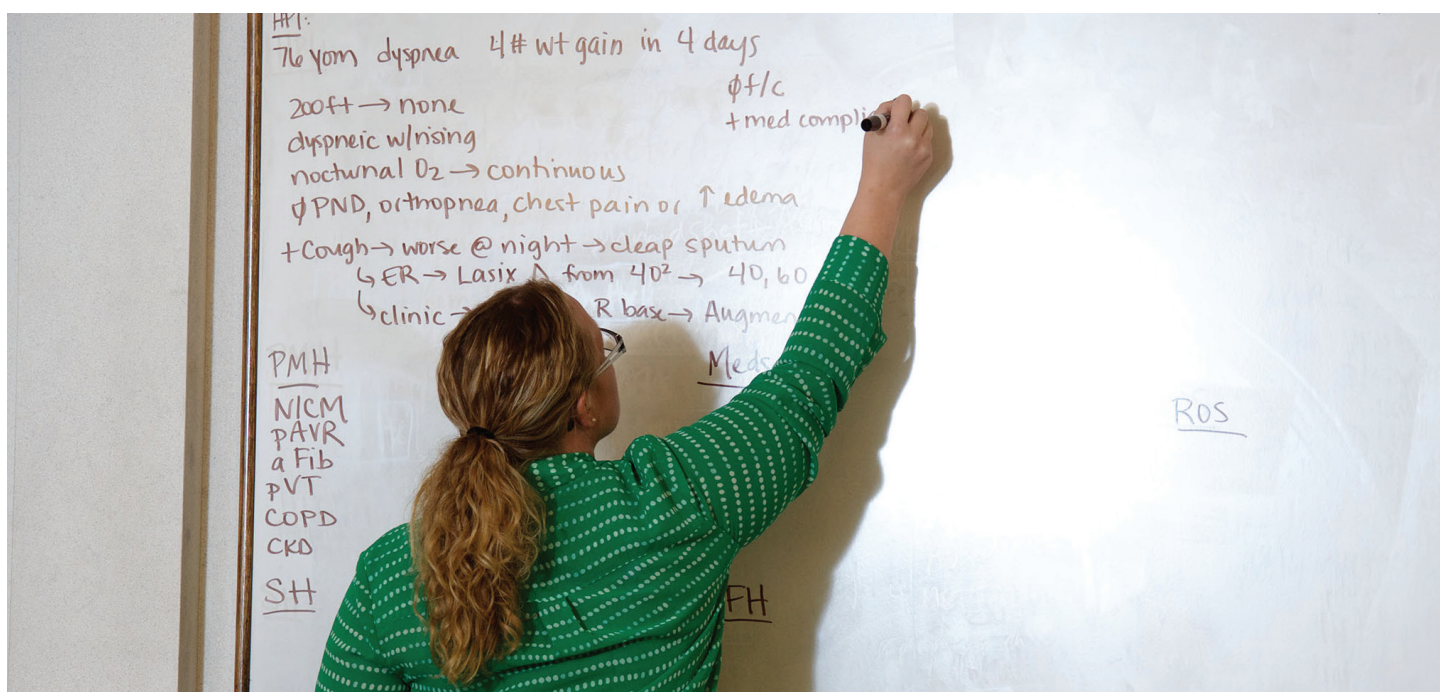 HPI:
76 yom dyspnea 4# wt gain in 4 days
200ft → none
dyspneic w/rising
nocturnal O2 → continuous
∅ PND, orthopnea, chest pain or ↑ edema
+Cough → worse @ night → cleap sputum
↳ ER → Lasix Δ from 40² → 40, 60
↳ clinic → R base → Augmen
∅ f/c
+ med compli
PMH
NICM
pAVR
a Fib
pVT
COPD
CKD
SH
Meds
FH
ROS